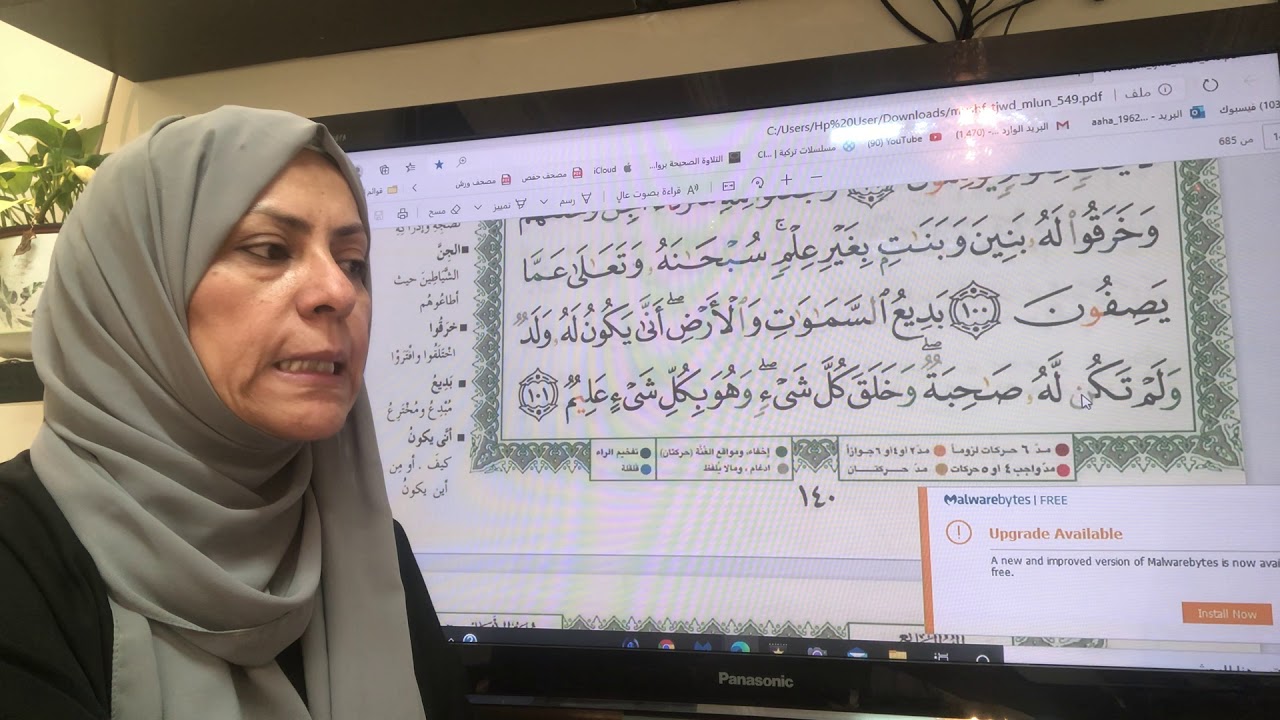 C:/Users/Hp%20User/Downloads/m tjwd_mlun_549.pdf ملف
(103) فيسبوك
البريد - aaha_1962...
البريد الوارد -... (1,470)
(90) YouTube
مسلسلات تركية | Cl...
التلاوة الصحيحة بروا...
iCloud
مصحف حفص
مصحف ورش
قوائم
من 685
قراءة بصوت عالٍ
رسم
تمييز
مسح
وَخَرَقُواْ لَهُۥ بَنِينَ وَبَنَٰتِۭ بِغَيْرِ عِلْمٖۚ سُبْحَٰنَهُۥ وَتَعَٰلَىٰ عَمَّا
يَصِفُونَ ١٠٠ بَدِيعُ ٱلسَّمَٰوَٰتِ وَٱلْأَرْضِۖ أَنَّىٰ يَكُونُ لَهُۥ وَلَدٞ
وَلَمْ تَكُن لَّهُۥ صَٰحِبَةٞۖ وَخَلَقَ كُلَّ شَىْءٖۖ وَهُوَ بِكُلِّ شَىْءٍ عَلِيمٞ ١٠١
الجِنَّ
الشَّيَاطِينَ حيث
أطاعُوهُم
خَرَقُوا
اخْتَلَقُوا وافْتَرَوْا
بَدِيعُ
مُبْدِعُ ومُخْتَرِعُ
أنّى يكونُ
كيفَ . أو مِن
أين يكونُ
مدّ ٦ حركات لزوماً
مدّ ٢ أو ٤ أو ٦ جوازاً
مدّ واجب ٤ أو ٥ حركات
مدّ حركتان
إخفاء، ومواقع الغُنَّة (حركتان)
ادغام ، ومالا يُلفظ
تفخيم الراء
قلقلة
١٤٠
Malwarebytes | FREE
Upgrade Available
A new and improved version of Malwarebytes is now
free.
Install Now
Panasonic